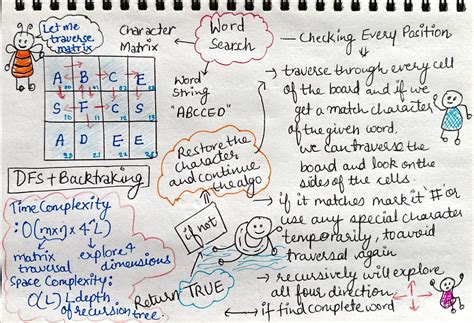 Let me
traverse
matrix
Character
Matrix
Word
Search
Word
String
"ABCCED"
A B C E
S F C S
A D E E
DFS+Backtraking
Time Complexity
:O(mxn x 4^L)
matrix
traversal
explore 4
dimensions
Space Complexity:
O(L) L depth
of recursion tree
Restore the
character
and continue
the algo
if not
Return TRUE
— Checking Every Position
→ traverse through every cell
of the board and if we
get a match character
of the given word,
we can traverse the
board and look on the
sides of the cells.
→ if it matches mark it '#' or
use any special character
temporarily, to avoid
traversal again
→ recursively will explore
all four direction
if find complete word